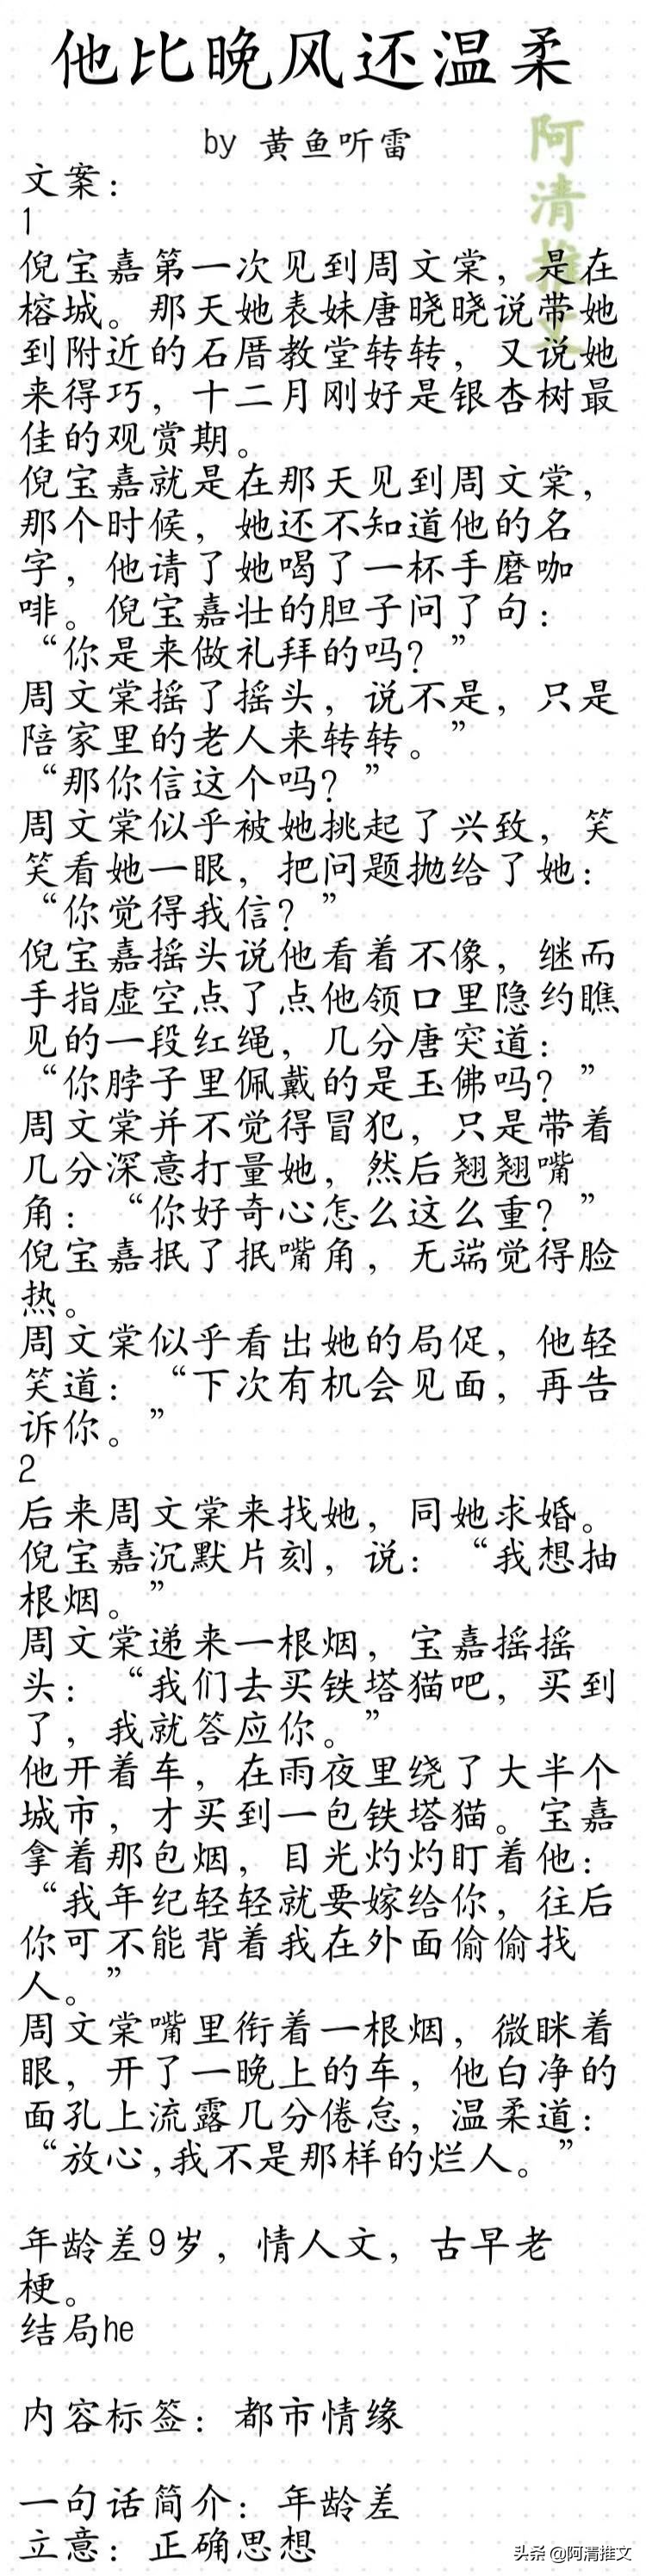 他比晚风还温柔
by 黄鱼听雷
阿清推文
文案：
1
倪宝嘉第一次见到周文棠，是在
榕城。那天她表妹唐晓晓说带她
到附近的石厝教堂转转，又说她
来得巧，十二月刚好是银杏树最
佳的观赏期。
倪宝嘉就是在那天见到周文棠，
那个时候，她还不知道他的名
字，他请了她喝了一杯手磨咖
啡。倪宝嘉壮的胆子问了句：
“你是来做礼拜的吗？”
周文棠摇了摇头，说不是，只是
陪家里的老人来转转。”
“那你信这个吗？”
周文棠似乎被她挑起了兴致，笑
笑看她一眼，把问题抛给了她：
“你觉得我信？”
倪宝嘉摇头说他看着不像，继而
手指虚空点了点他领口里隐约瞧
见的一段红绳，几分唐突道：
“你脖子里佩戴的是玉佛吗？”
周文棠并不觉得冒犯，只是带着
几分深意打量她，然后翘翘嘴
角：“你好奇心怎么这么重？”
倪宝嘉抿了抿嘴角，无端觉得脸
热。
周文棠似乎看出她的局促，他轻
笑道：“下次有机会见面，再告
诉你。”
2
后来周文棠来找她，同她求婚。
倪宝嘉沉默片刻，说：“我想抽
根烟。”
周文棠递来一根烟，宝嘉摇摇
头：“我们去买铁塔猫吧，买到
了，我就答应你。”
他开着车，在雨夜里绕了大半个
城市，才买到一包铁塔猫。宝嘉
拿着那包烟，目光灼灼盯着他：
“我年纪轻轻就要嫁给你，往后
你可不能背着我在外面偷偷找
人。”
周文棠嘴里衔着一根烟，微眯着
眼，开了一晚上的车，他白净的
面孔上流露几分倦怠，温柔道：
“放心,我不是那样的烂人。”
年龄差9岁，情人文，古早老
梗。
结局he
内容标签：都市情缘
一句话简介：年龄差
立意：正确思想
头条 @阿清推文